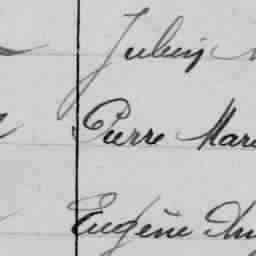 Julien
Pierre Mar
Eugène Au